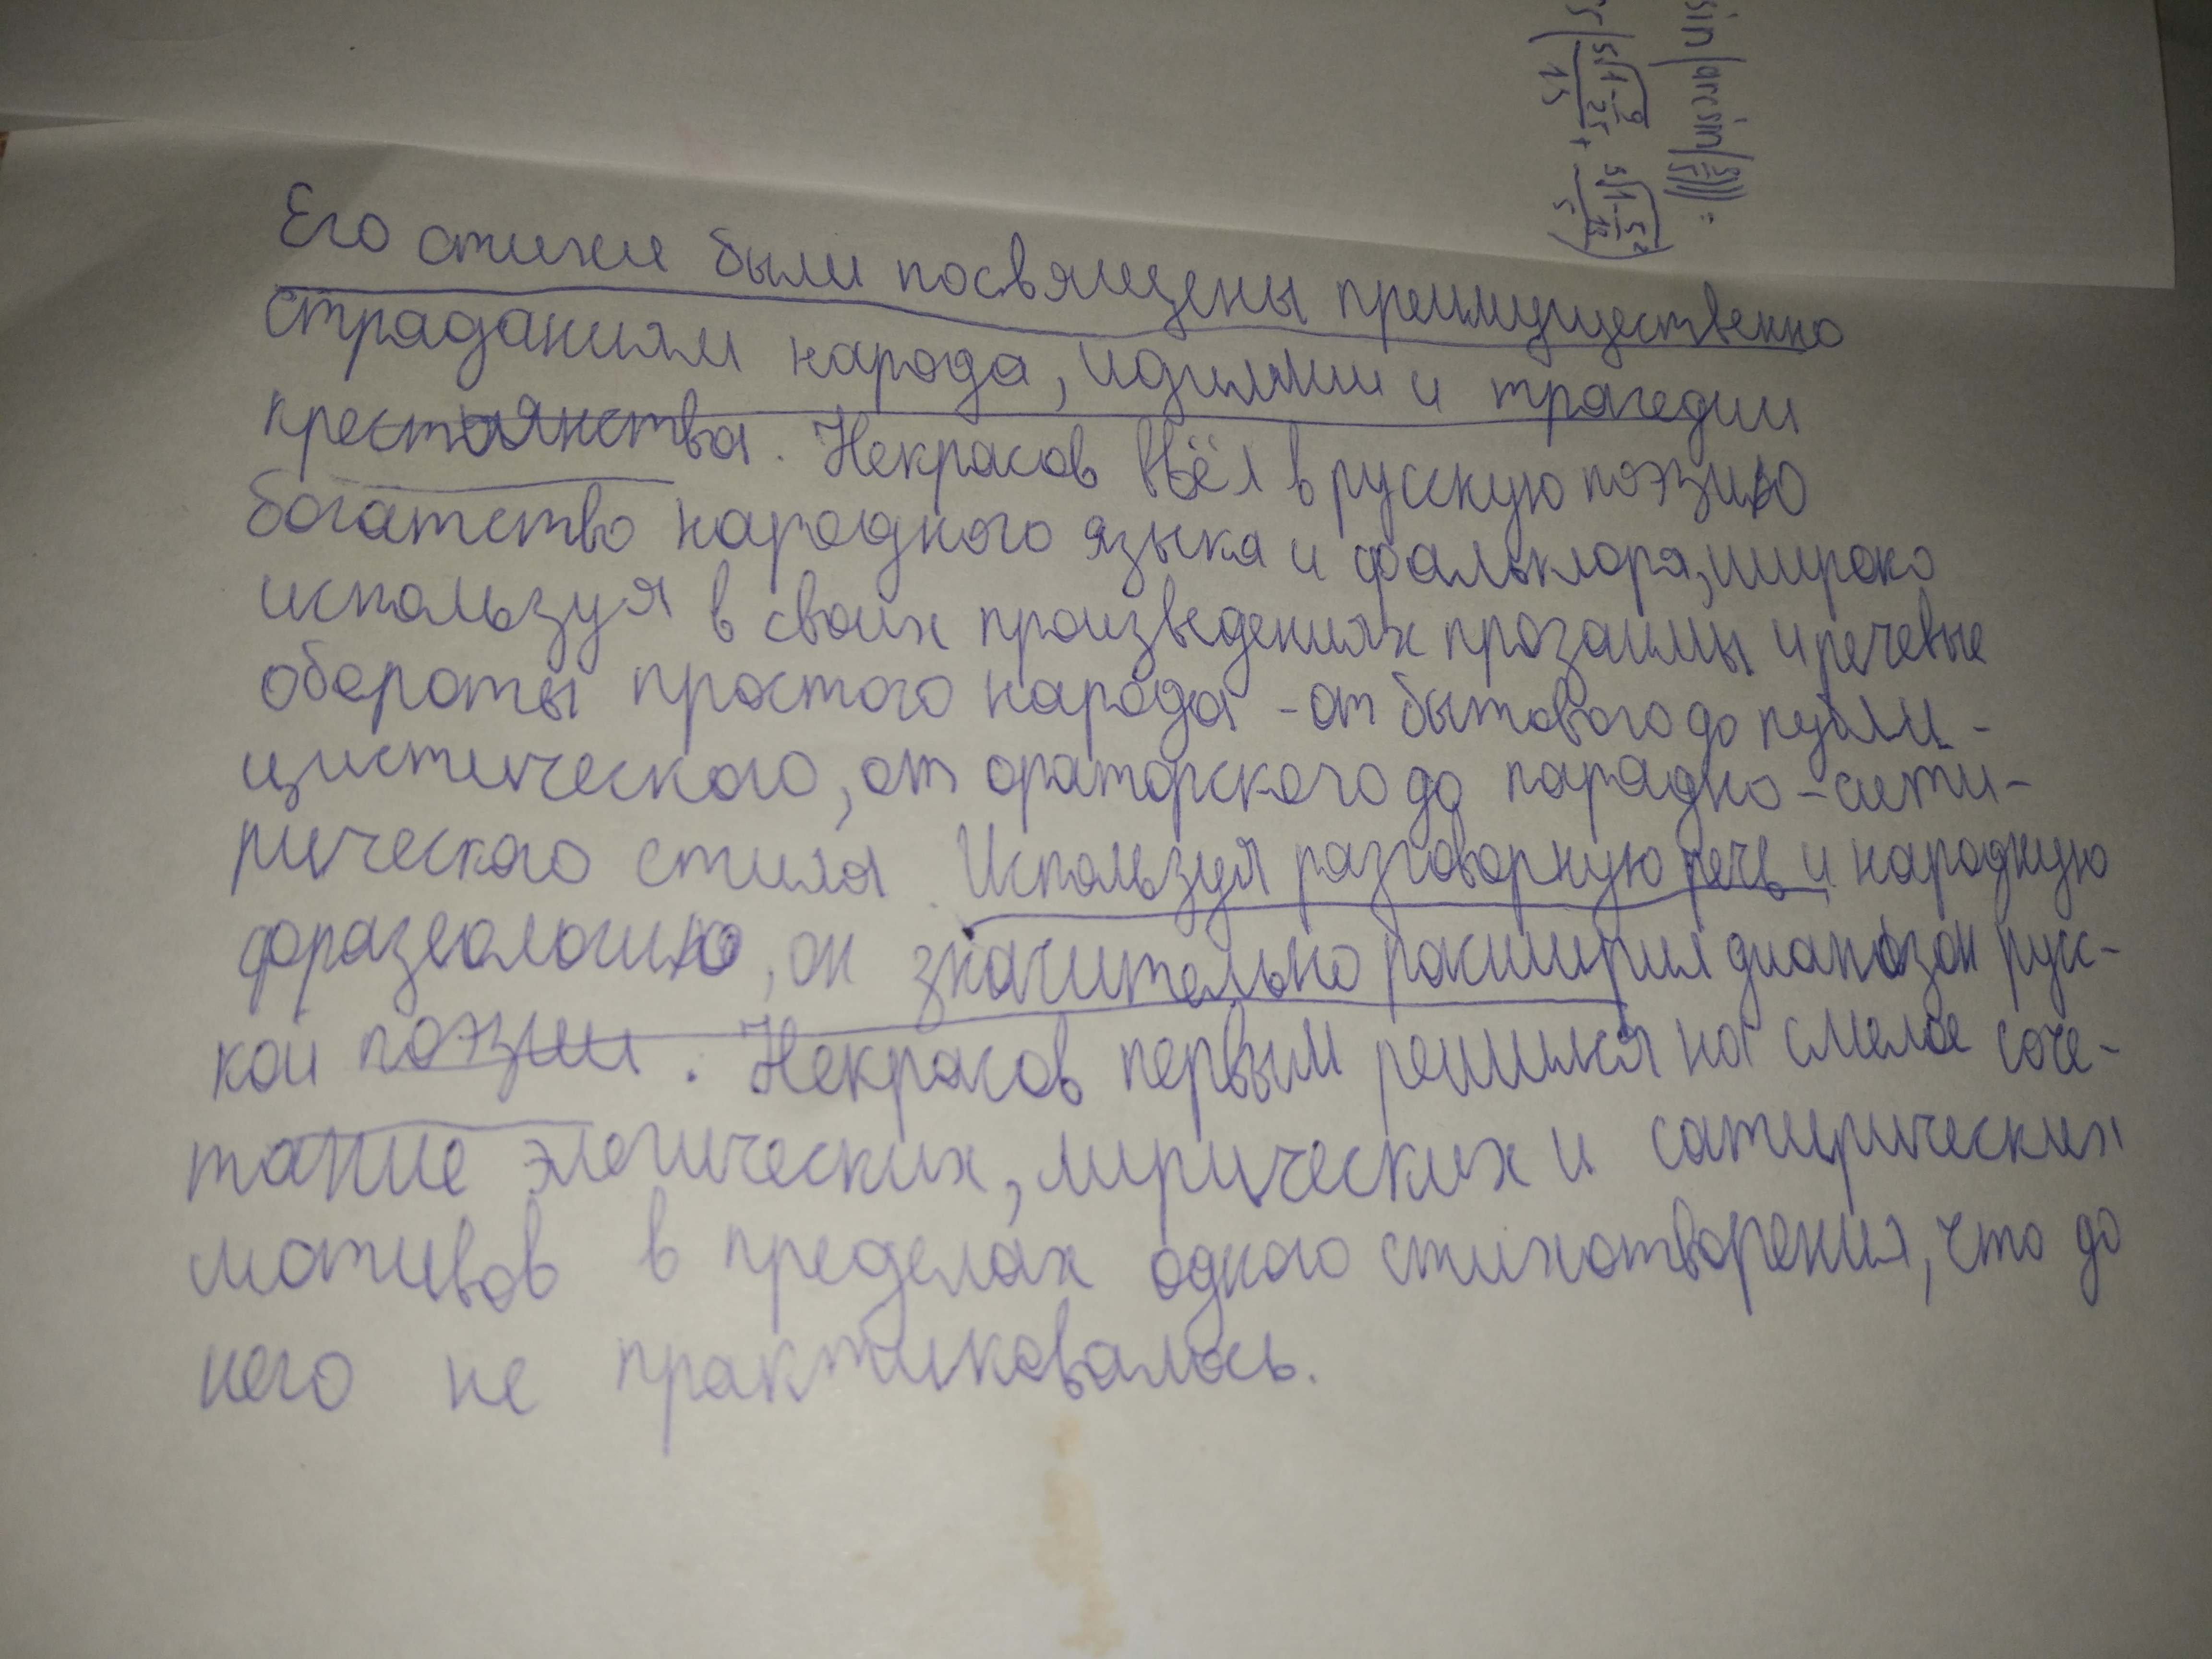 sin(arcsin(
Его стихи были посвящены преимущественно
страданиям народа, идиллии и трагедии
крестьянства. Некрасов ввёл в русскую поэзию
богатство народного языка и фальклора, широко
используя в своих произведениях прозаимы и речевые
обороты простого народа - от бытового до публи-
цистического, от ораторского до парадно-сати-
рического стиля. Используя разговорную речь и народную
фразеологию, он значительно расширил диапозон русс-
кой поэзии. Некрасов первым решился на смелое соче-
тание элегических, лирических и сатирических
мотивов в пределах одного стихотворения, что до
него не практиковалось.